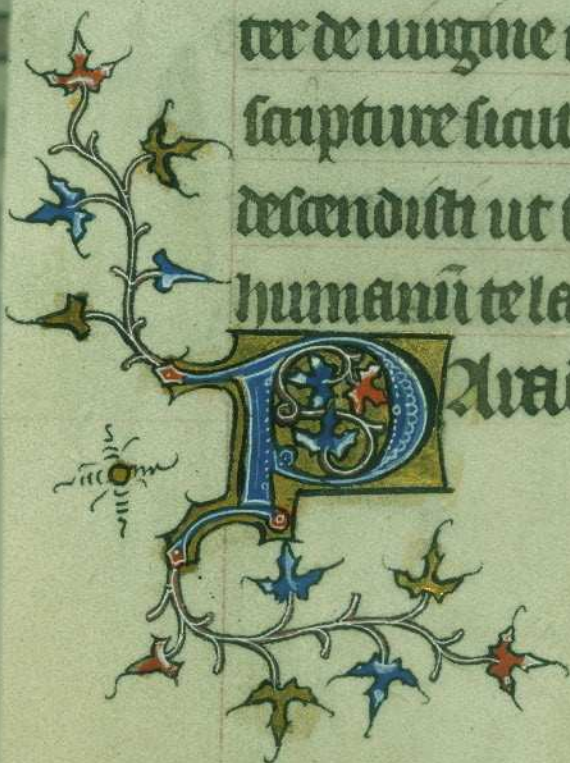 ter de uirgine
scripture sicut
descendisti ut
humanū te la
Parad